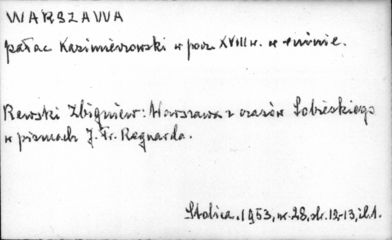 WARSZAWA
pałac Kazimierzowski w pocz. XVIII w. w ruinie.
Rewski Zbigniew: Warszawa z czasów Sobieskiego
w pismach J. Fr. Regnarda.
Stolica, 1953, nr. 28, str. 12-13, il. 1.